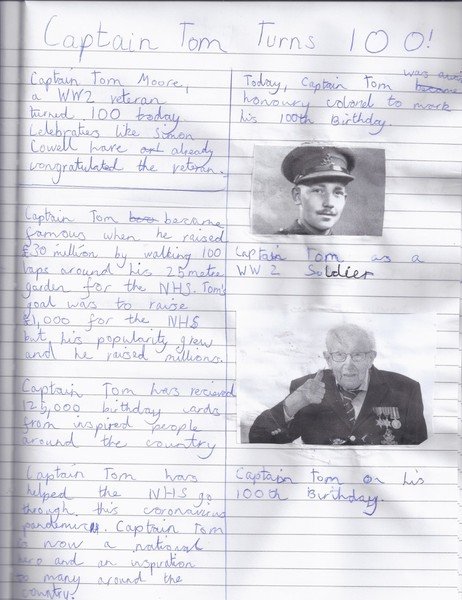 Captain Tom Turns 100!
Captain Tom Moore,
a WW2 veteran
turned 100 today.
Celebraties like Simon
Cowell have already
congratulated the veteran.
Captain Tom became
famous when he raised
£30 million by walking 100
laps around his 25 metre
garden for the NHS. Tom's
goal was to raise
£1,000 for the NHS
but his popularity grew
and he raised millions.
Captain Tom has recieved
125,000 birthday cards
from inspired people
around the country
Captain Tom has
helped the NHS go
through this coronavirus
pandemic. Captain Tom
is now a national
hero and an inspiration
to many around the
country.
Today, Captain Tom was
honoury colonel to mark
his 100th Birthday.
Captain Tom as a
WW2 Soldier
Captain Tom on his
100th Birthday.